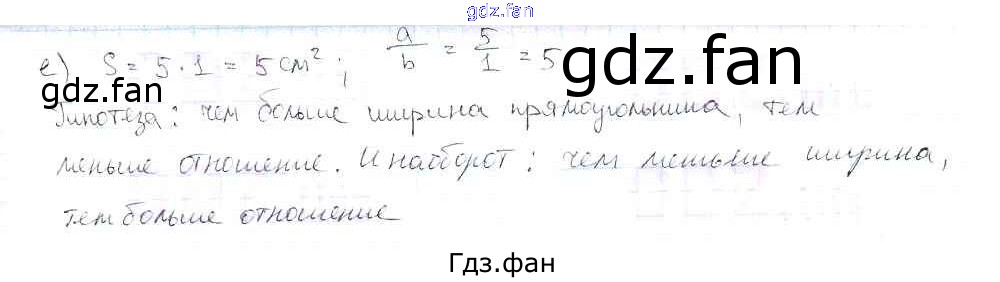 gdz.fan
е) S = 5 · 1 = 5 см²; a/b = 5/1 = 5
gdz.fan
gdz.fan
Гипотеза: чем больше ширина прямоугольника, тем
меньше отношение. И наоборот: чем меньше ширина,
тем больше отношение
Гдз.фан